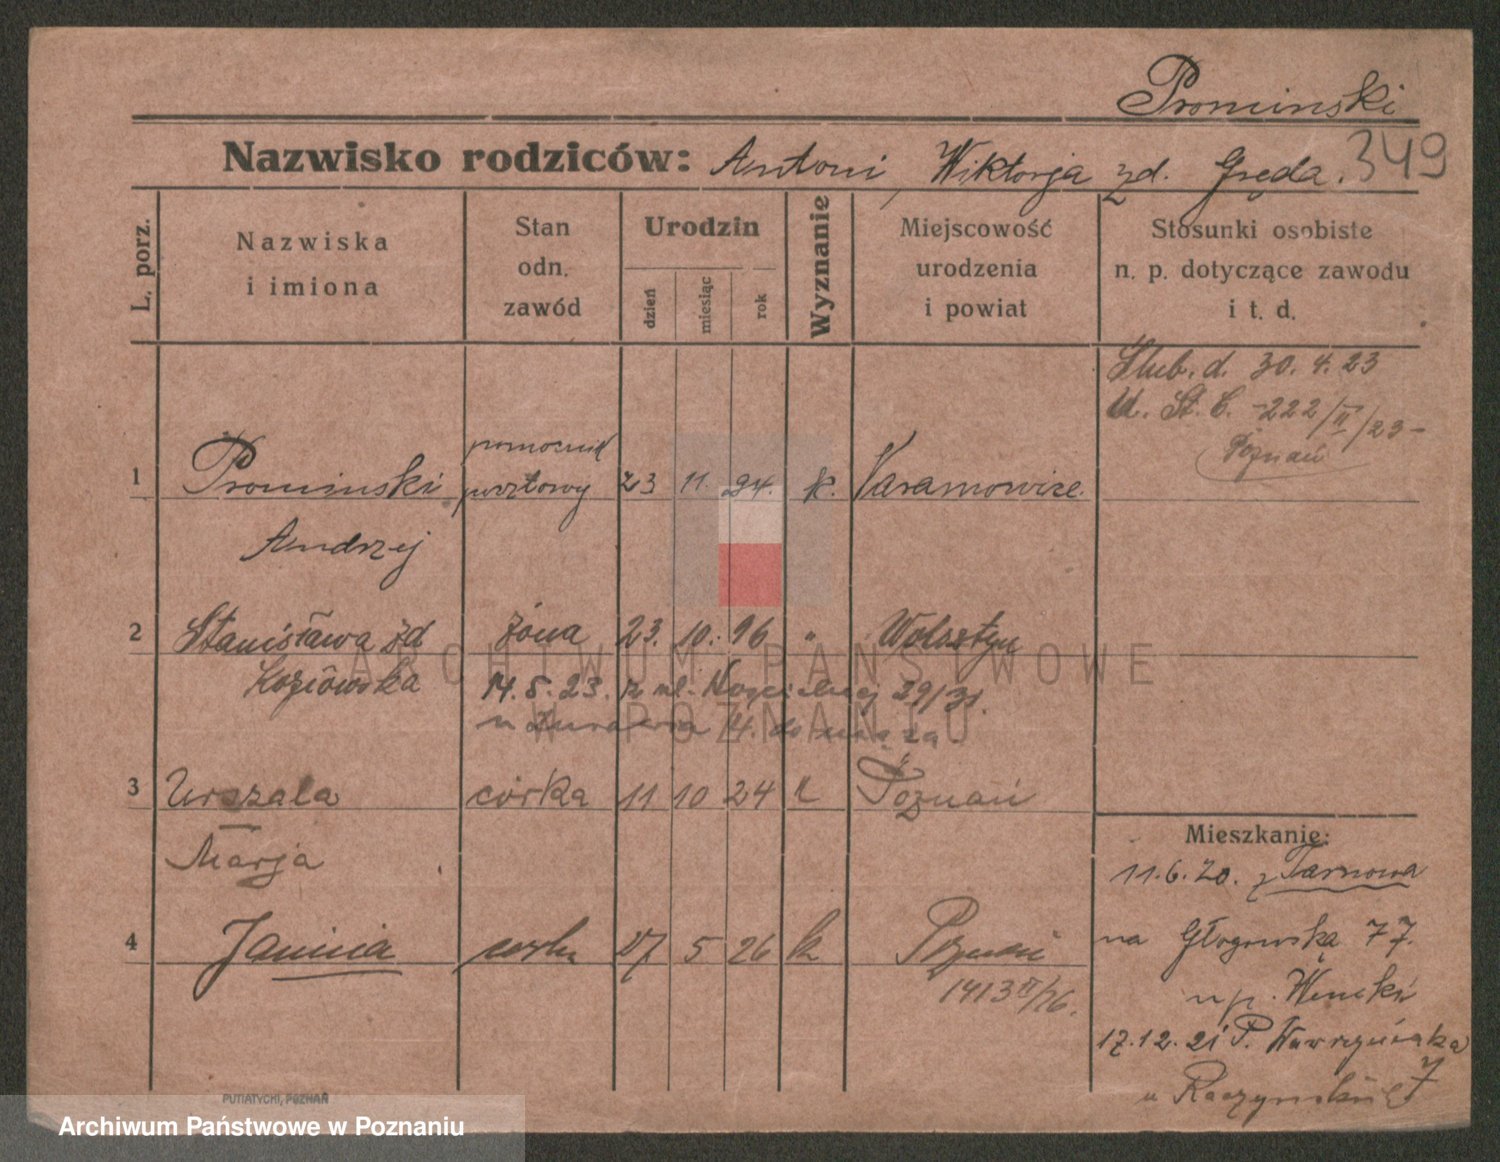 Prominski
349
Nazwisko rodziców: Antoni, Wiktorja zd. Gręda.
L. porz.
Nazwiska
i imiona
Stan
odn.
zawód
Urodzin
dzień
miesiąc
rok
Wyznanie
Miejscowość
urodzenia
i powiat
Stosunki osobiste
n. p. dotyczące zawodu
i t. d.
Ślub. d. 30. 4. 23
U. St. C. 222/II/23-
Poznań
1 Prominski pocztowy 23 11. 94. k.
Andrzej
2 Stanisława zd żona 23. 10. 96 " Wolsztyn
Koziówska 14. 5. 23. z ul. 29/31.
4. do męża
3 Urszala córka 11 10 24 k Poznań
Marja
4 Janina córka 27 5 26 k Poznań
1413 II/26.
Mieszkanie:
11. 6. 20. z Tarnowa
na Głogowską 77.
u p.
17. 12. 21 P. Wawrzyniaka 7
u
ARCHIWUM PAŃSTWOWE
W POZNANIU
PUTIATYCKI, POZNAŃ
Archiwum Państwowe w Poznaniu